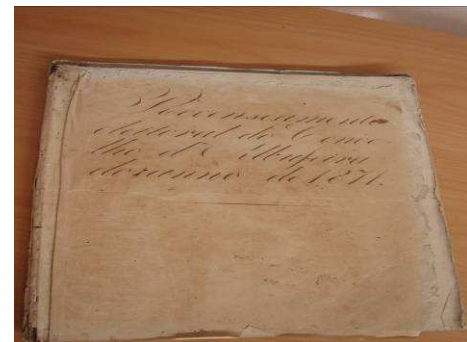 Recenseamento
eleitoral do Conce
lho d'Albufeira
do anno de 1871.